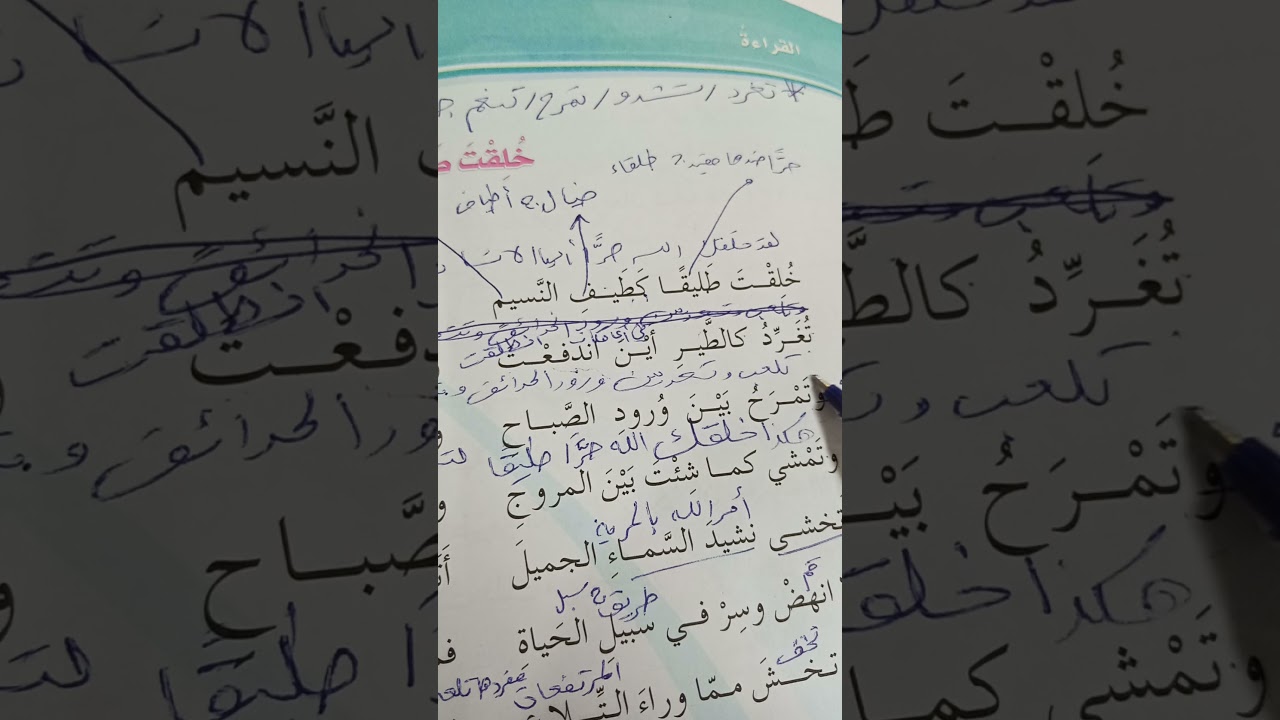 القراءة
* تغرد / تشدو / تمرح / تنغم
خُلِقْتَ
حرًّا ضدها مقيد ج طلقاء
خيال ج أطياف
لقد خلقك الله حرًّا أيها الانسان
خُلقْتَ طَليقًا كَطَيفِ النَّسيم
في أي مكان انطلقت
تُغَرِّدُ كالطَّيرِ أيْنَ اندَفعْتَ
تلعب و بين زهور الحدائق و
وتَمْرَحُ بَيْنَ وُرودِ الصَّباحِ
هكذا خلقك الله حرًّا طليقًا
وتَمْشي كما شئْتَ بَيْنَ المروجِ
أمر الله بالحرية
تخشى نشيدَ السَّماءِ الجميلَ
قم
انهَضْ وسِرْ في سَبيلِ الحَياة
طريق ج سبل
تخف
تخْشَ ممّا وراءَ التِّلاعِ
المرتفعات مفردها تلعة